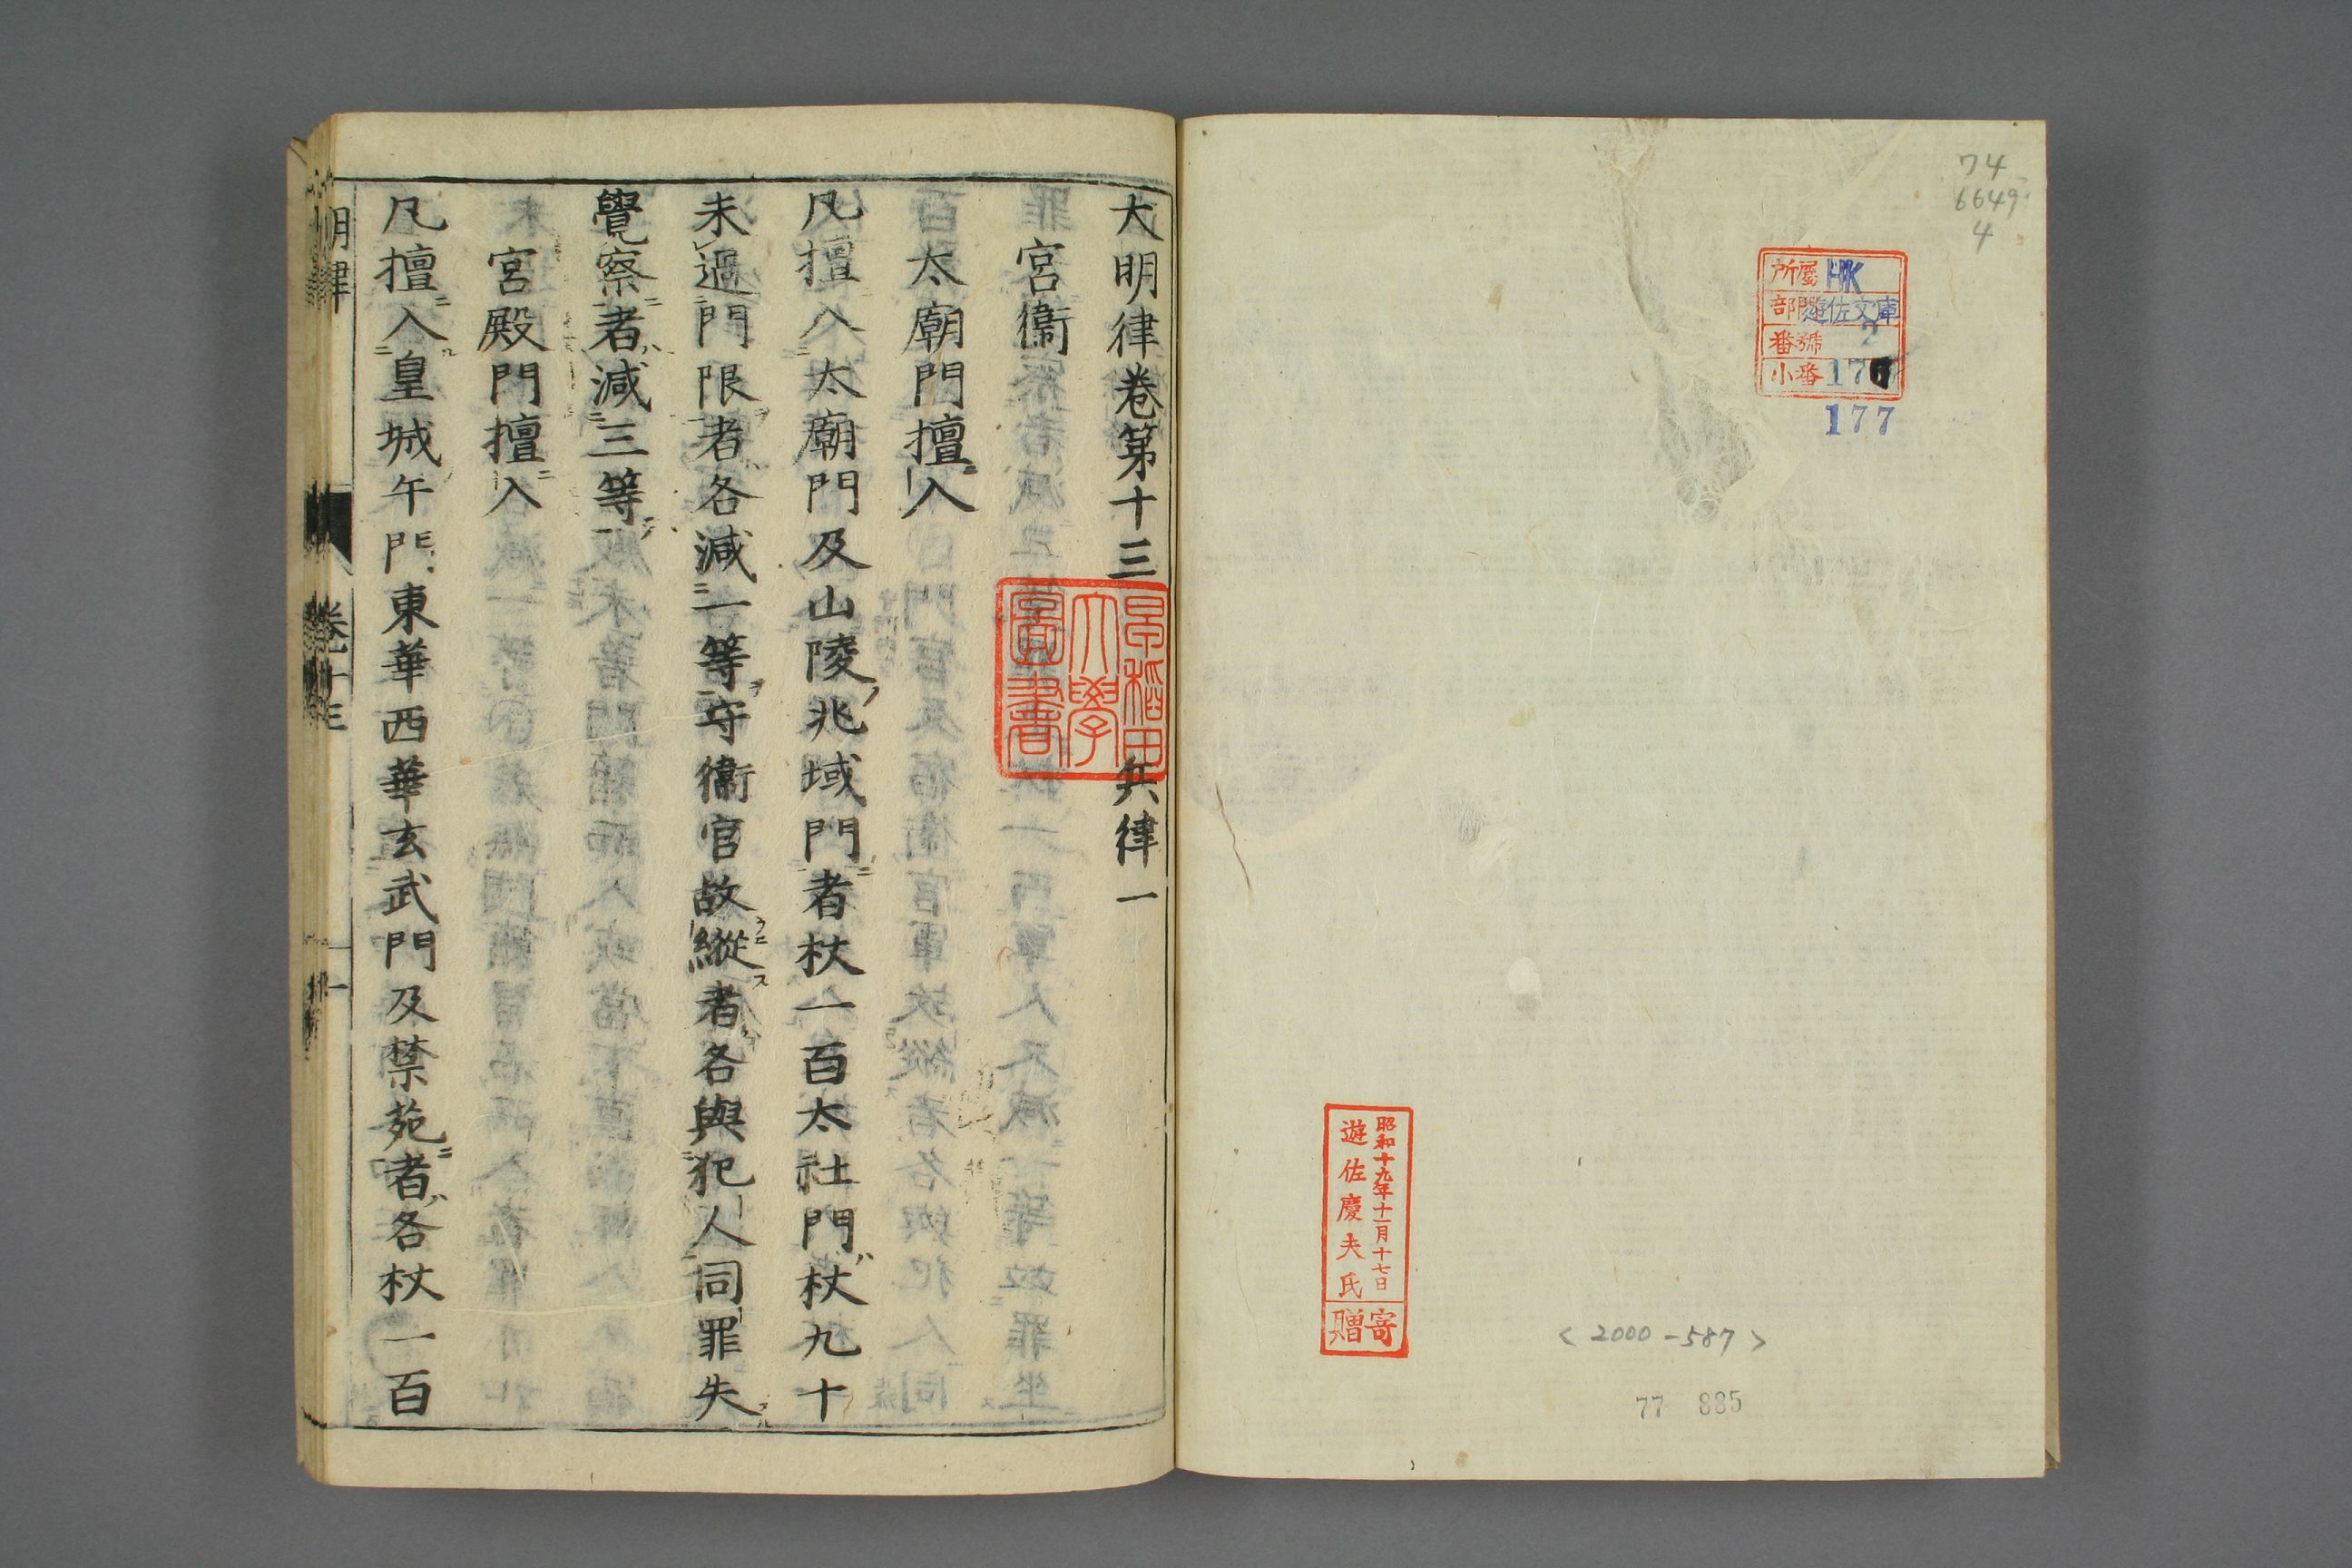 74
6649
4
所屬 HK
部門 遊佐文庫
番號 2
小番 176
177
昭和十九年十一月十七日
遊佐慶夫氏
寄贈
< 2000-587 >
77 885
大明律卷第十三 兵律一
早稻田
大學
圖書
宮衞
太廟門擅入
凡擅入太廟門及山陵兆域門者杖一百太社門杖九十
未過門限者各減一等守衞官故縱者各與犯人同罪失
覺察者減三等
宮殿門擅入
凡擅入皇城午門東華西華玄武門及禁苑者各杖一百
明律 卷十三 一